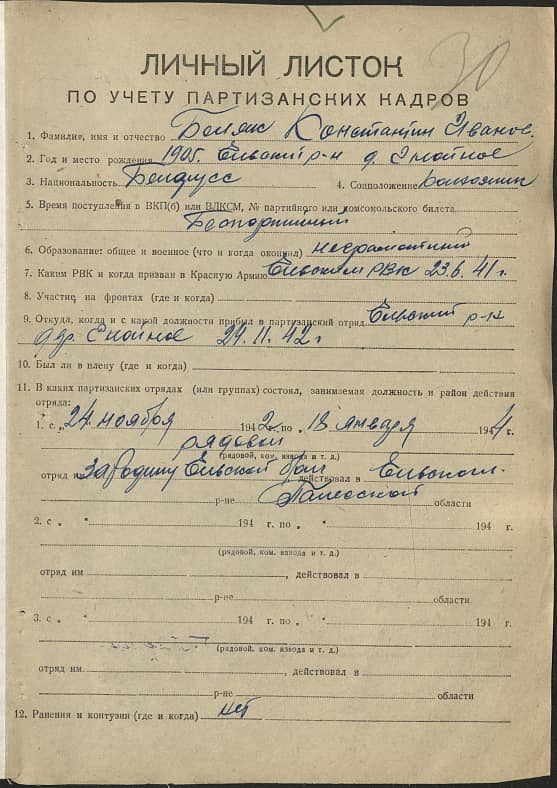 30
ЛИЧНЫЙ ЛИСТОК
ПО УЧЕТУ ПАРТИЗАНСКИХ КАДРОВ
1. Фамилия, имя и отчество Константин Иванов.
2. Год и место рождения 1905г. Ельский р-н д.
3. Национальность Белорусс 4. Соцположение Колхозник
5. Время поступления в ВКП(б) или ВЛКСМ, № партийного или комсомольского билета
Беспартийный
6. Образование: общее и военное (что и когда окончил) неграмотный
7. Каким РВК и когда призван в Красную Армию Ельским РВК 23.6.41г.
8. Участие на фронтах (где и когда)
9. Откуда, когда и с какой должности прибыл в партизанский отряд Ельский р-н
дер. 24.11.42г
10. Был ли в плену (где и когда)
11. В каких партизанских отрядах (или группах) состоял, занимаемая должность и район действия
отряда:
1. с „24 ноября 1942 г. по 18 января 1944 г.
рядовой
(рядовой, ком. взвода и т. д.)
отряд им За Родину Ельской бриг действовал в Ельском
р-не Полесской области
2. с „ “ 194 г. по „ “ 194 г.
(рядовой, ком. взвода и т. д.)
отряд им , действовал в
р-не области
3. с „ “ 194 г. по „ “ 194 г.
(рядовой, ком. взвода и т. д.)
отряд им. , действовал в
р-не области
12. Ранения и контузии (где и когда) нет